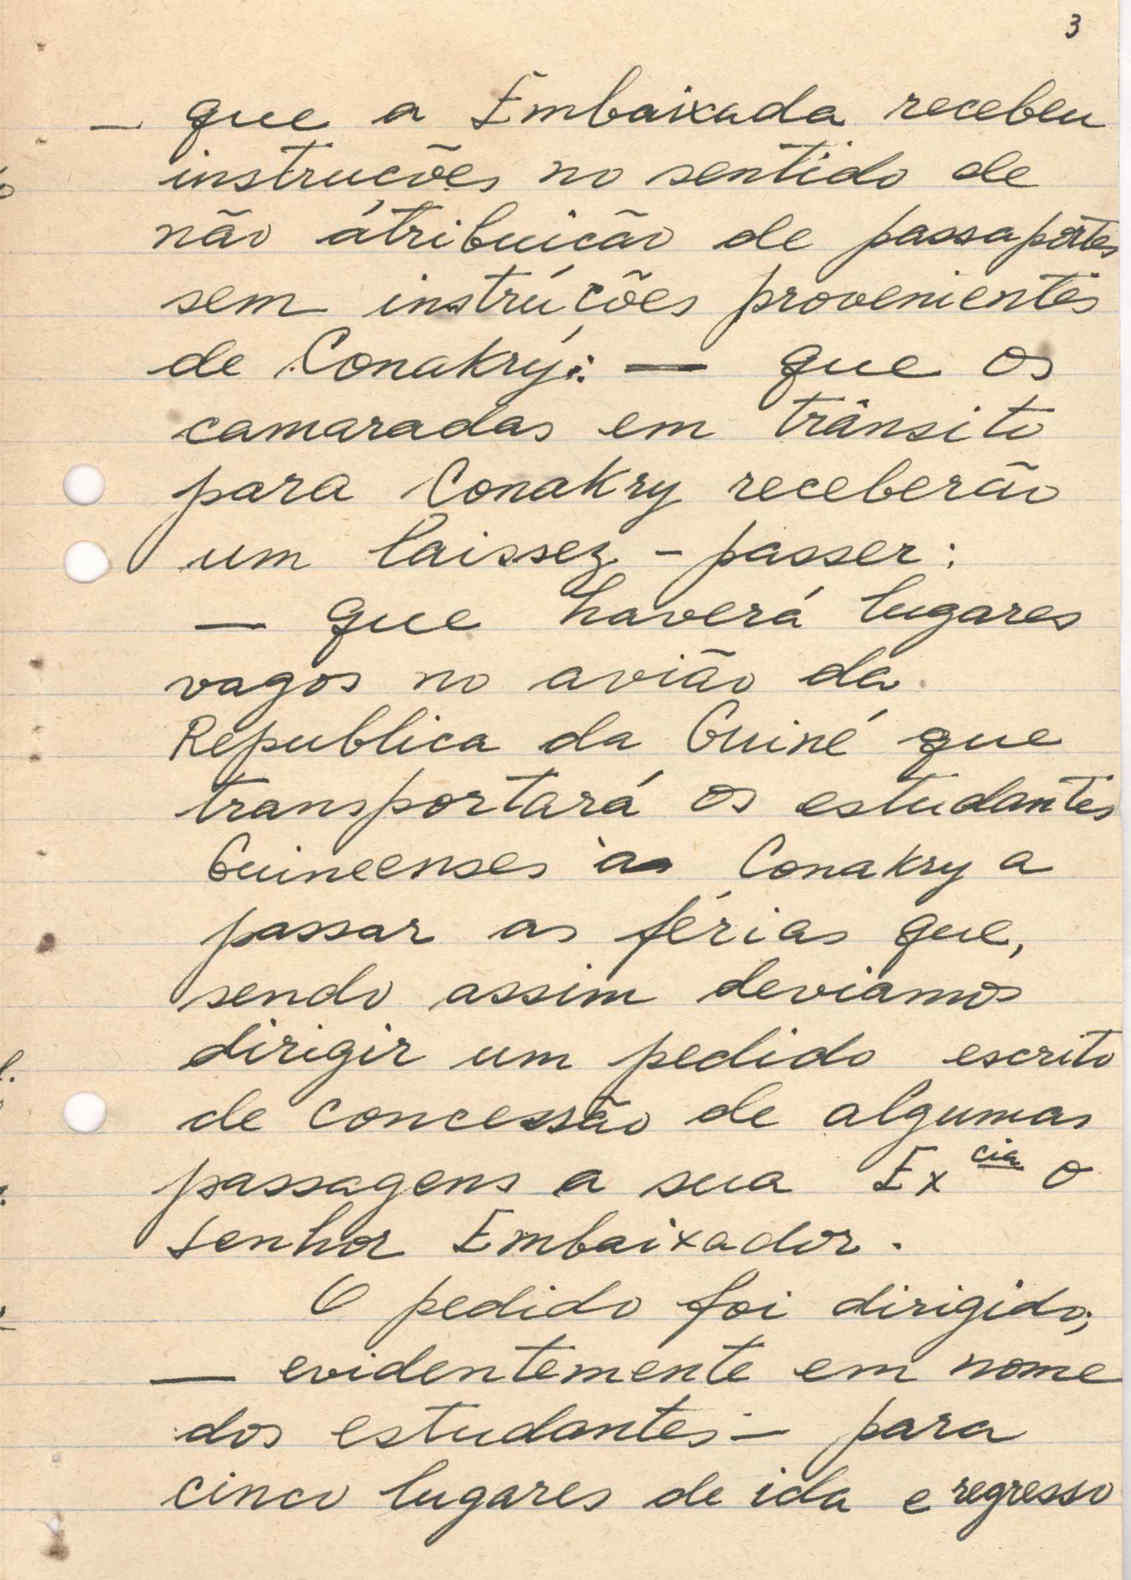 3
— que a Embaixada recebeu
instrucões no sentido de
não átribuicão de passaportes
sem instrúções provenientes
de Conakry: — que os
camaradas em trânsito
para Conakry receberão
um laissez - passer:
— que haverá lugares
vagos no avião da
Republica da Guiné que
transportará os estudantes
Guineenses a Conakry a
passar as férias que,
sendo assim deviamos
dirigir um pedido escrito
de concessão de algumas
passagens a sua Ex cia o
senhor Embaixador.
O pedido foi dirigido,
— evidentemente em nome
dos estudantes — para
cinco lugares de ida e regresso